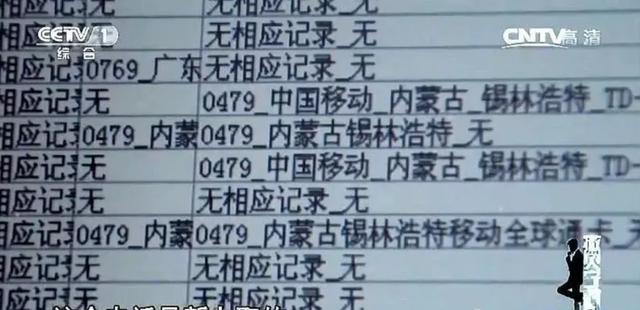 CCTV 1 综合
CNTV高清
无相应记录_无
无相应记录_无
相应记录 0769_广东 无相应记录_无
相应记录 无 0479_中国移动_内蒙古_锡林浩特_TD-
相应记录 0479_内蒙 0479_内蒙古锡林浩特_无
相应记录 无 0479_中国移动_内蒙古_锡林浩特_TD-
相应记录 无 无相应记录_无
相应记录 0479_内蒙 0479_内蒙古锡林浩特移动全球通卡_无
相应记录 无 无相应记录_无
相应记录 无 无相应记录_无